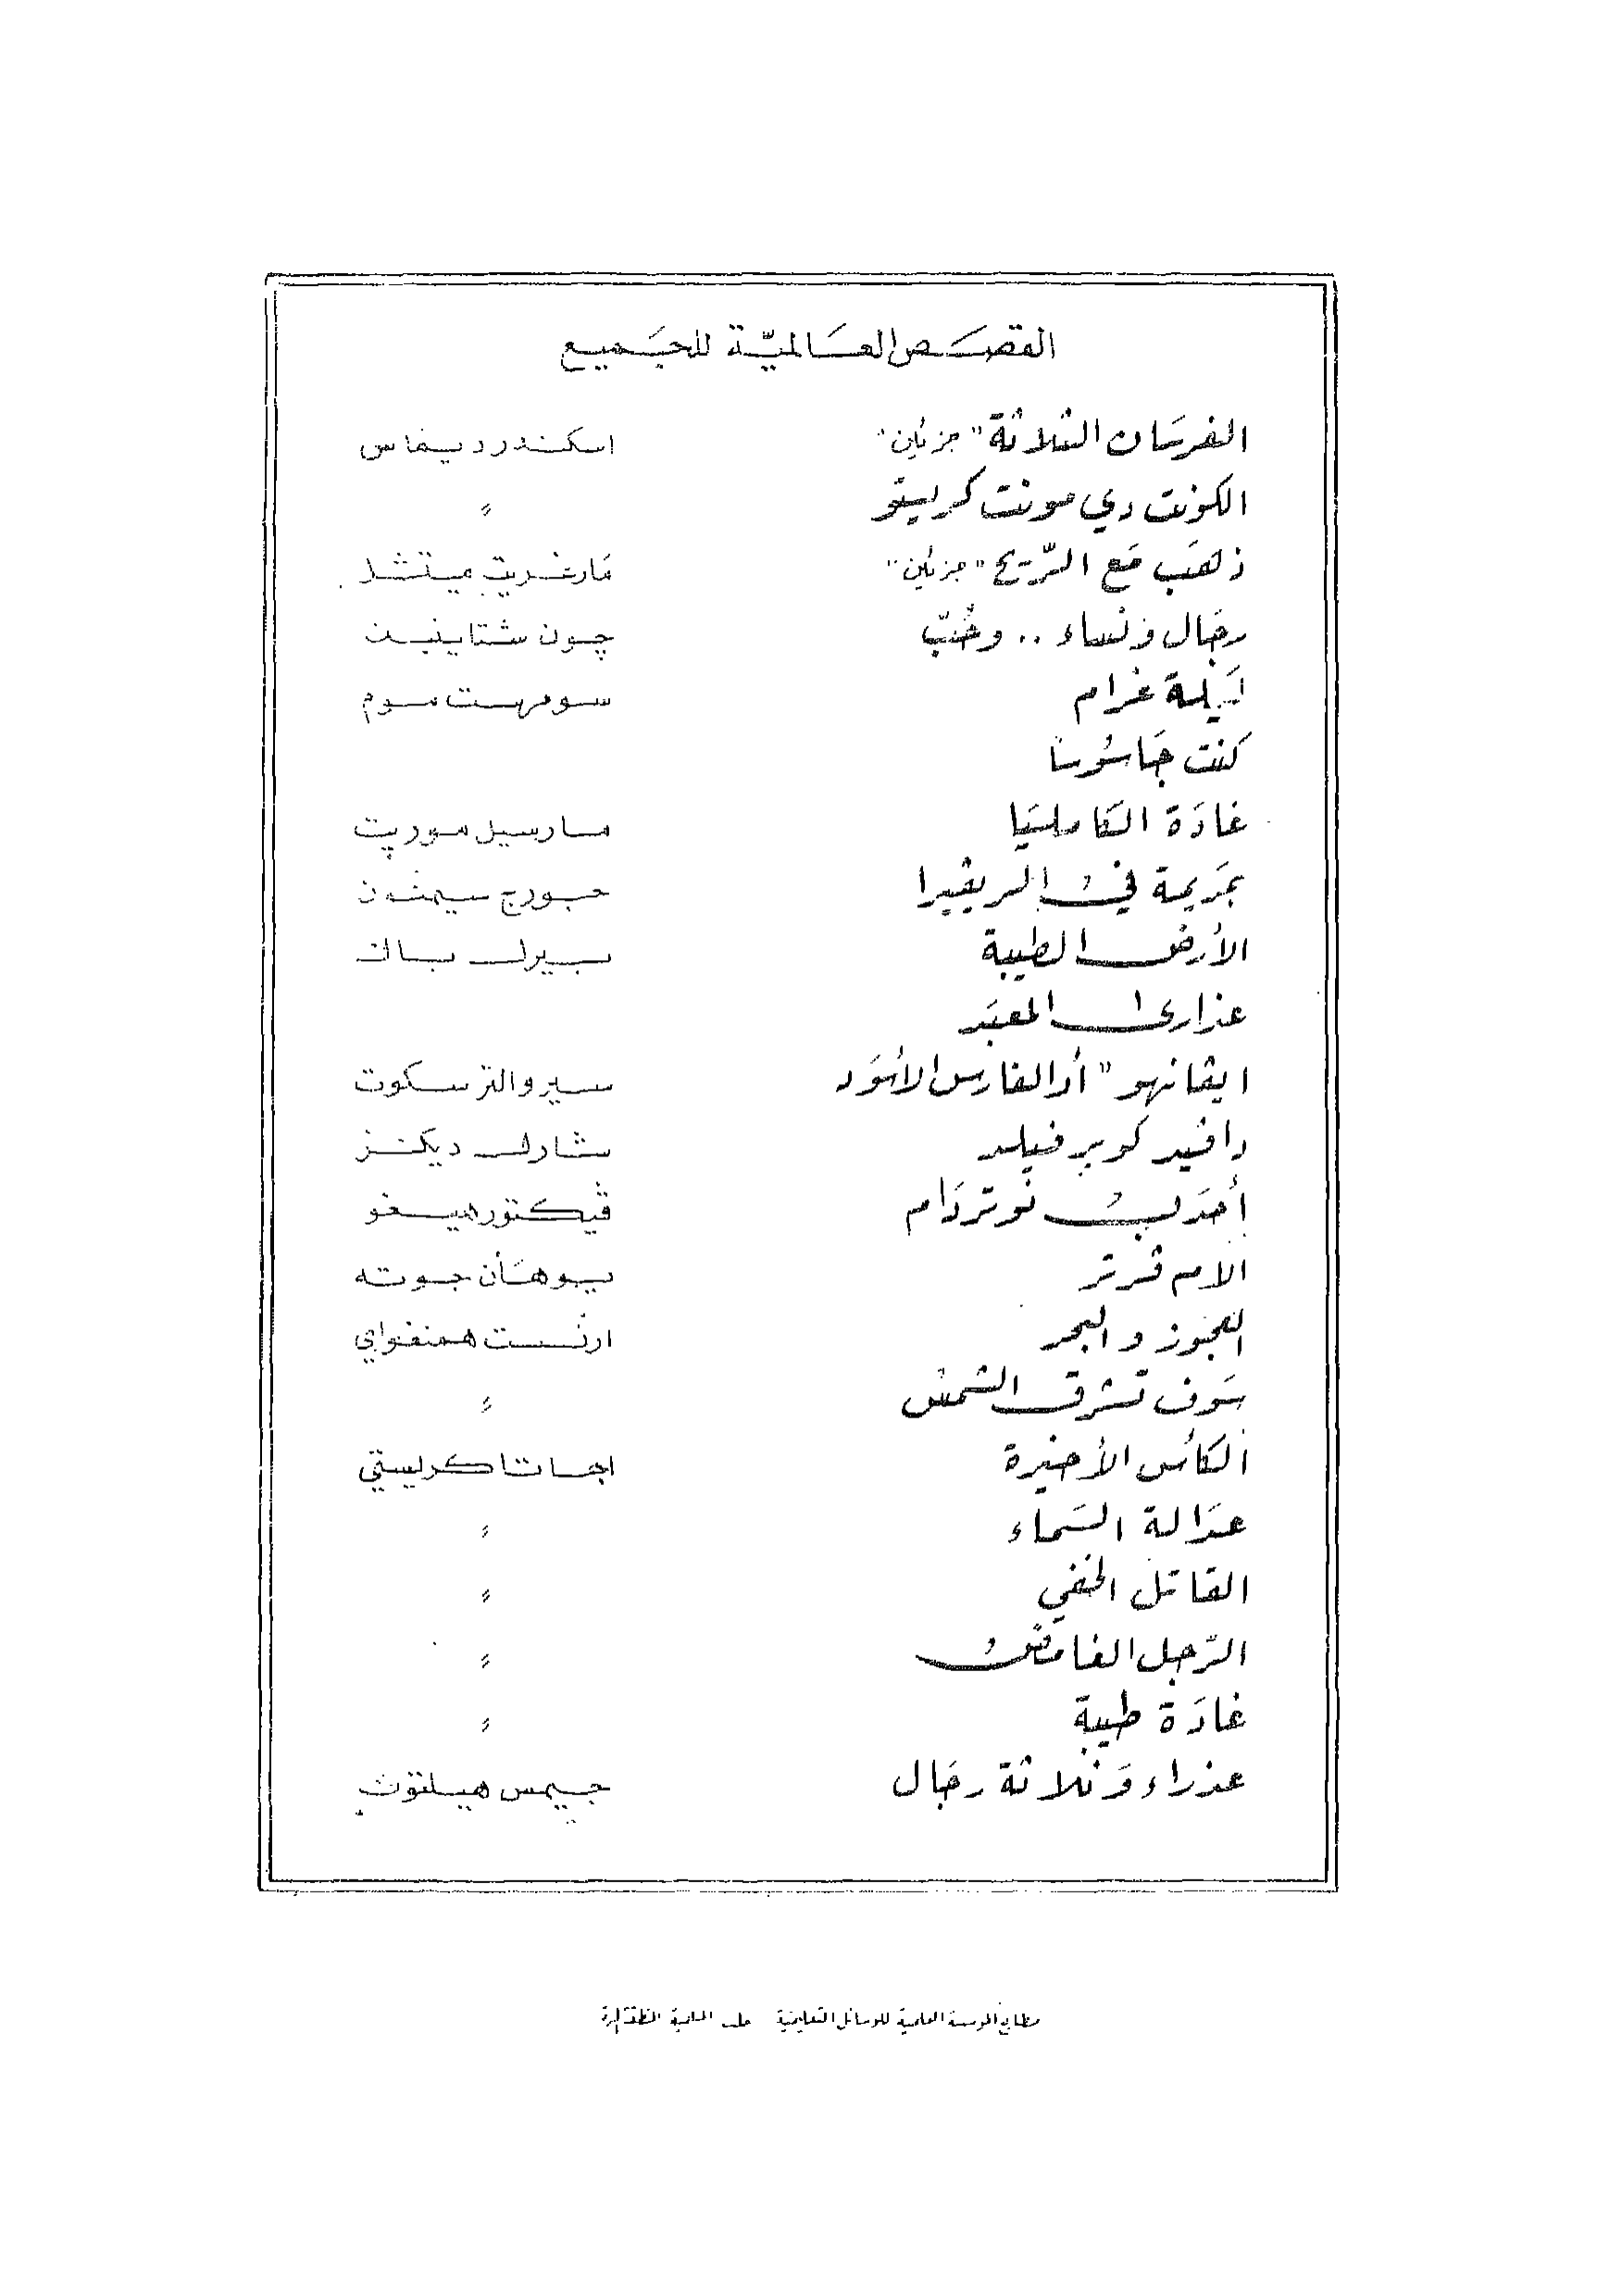 القصَص العَالميّة للجَميع
الفرسَان الثلاثة "جزئين" اسكندر ديماس
الكونت دي مونت كريستو "
ذهَب مَع الرّيح "جزئين" مَارغريت ميتشل
رجَال ونساء .. وحُبّ چون شتاينبـ
ليَلة غرام سومرست موم
كنت جَاسُوسًا
غادَة الكَامليَا مارسيل موريت
جَريمة في الريڤيرا جورج سيمنون
الأرض الطيبة بيرل باك
عذارى المعبَد
ايڤانهو "أو الفارس الأسوَد سير والتر سكوت
دافيد كوبر فيلد شارل ديكنز
أحدَب نوتردَام ڤيكتور هيغو
الام ڤرتر يوهَان جوته
العجوز والبحر ارنست همنغواي
سَوف تشرق الشمس "
الكأس الأخيرة اجاتا كريستي
عدَالة السَماء "
القاتل الخفي "
الرّجل الغامض "
غادَة طيبة "
عذراء وَثلاثة رجَال جيمس هيلتون
مطابع المؤسسة العلمية للوسائل التعليمية حلب